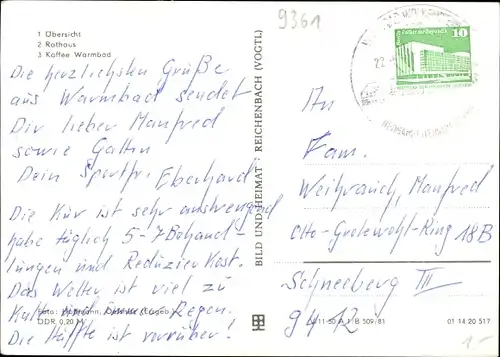 1 Übersicht
2 Rathaus
3 Kaffee Warmbad
9361
Die herzlichsten Grüße
aus Warmbad sendet
Dir lieber Manfred
sowie Gattin
Dein Sportfr. Eberhard
Die Kur ist sehr anstrengend
habe täglich 5-7 Behand-
lungen und Reduzier Kost.
Das Wetter ist viel zu
Kalt und immer Regen.
Die Hälfte ist vorüber!
Foto:
DDR 0,20 M
BILD UND HEIMAT REICHENBACH (VOGTL)
10
22.
An
Fam.
Weihrauch, Manfred
Otto-Grotewohl-Ring 18B
Schneeberg III
9412
B 509/81
01 14 20 517
1-